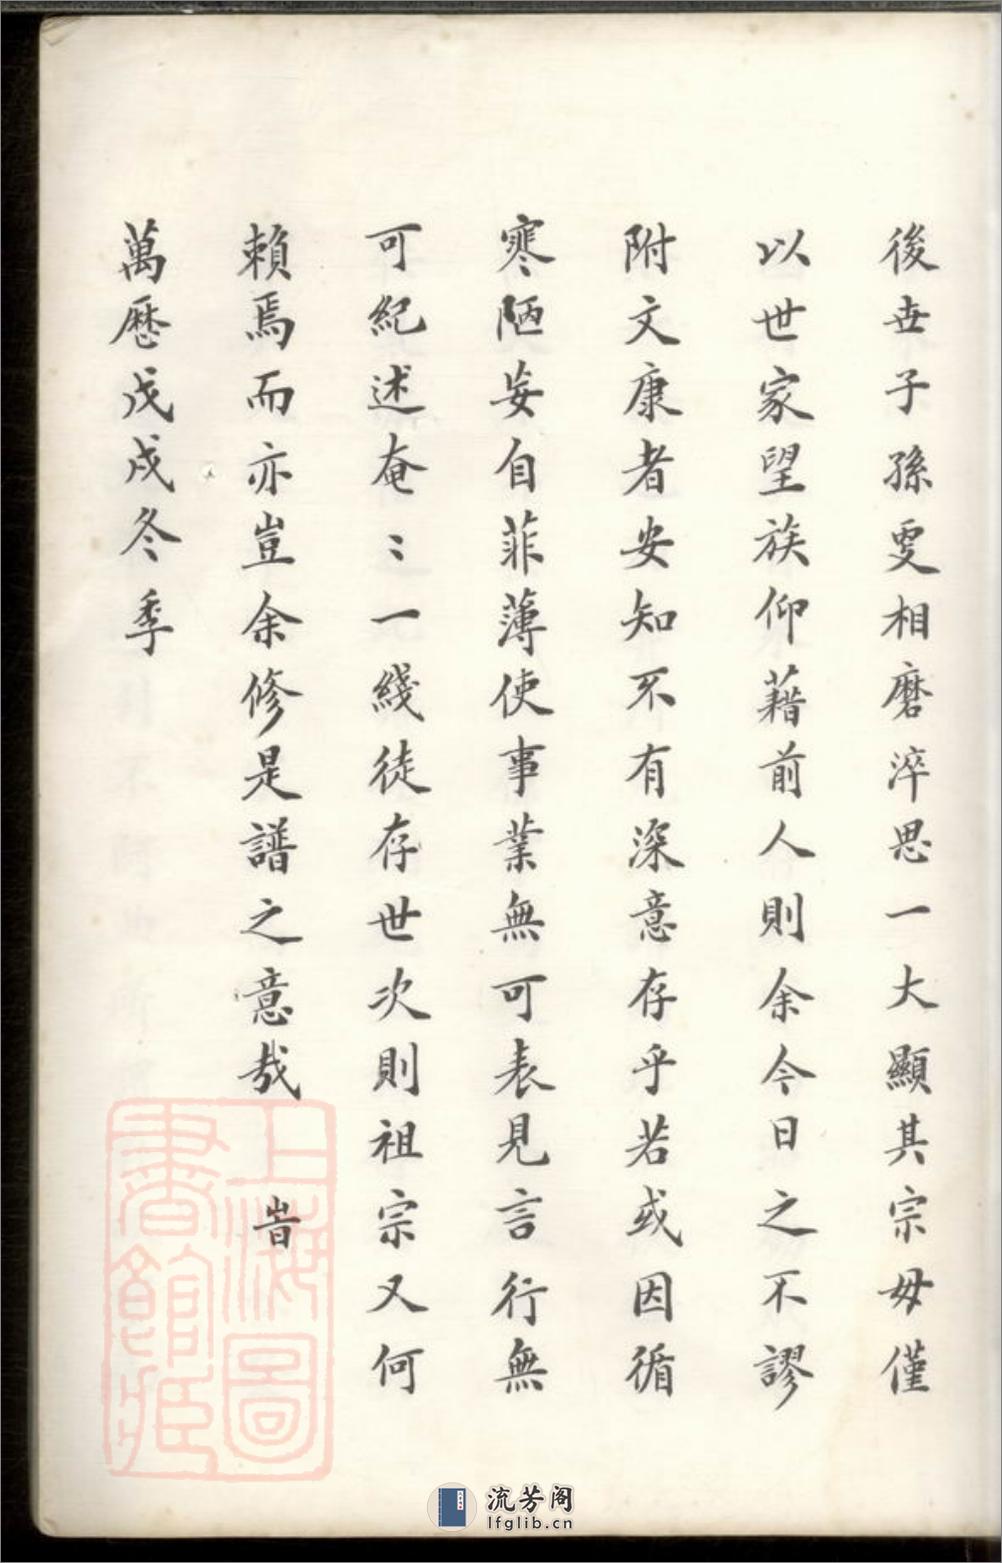 後世子孫更相磨淬思一大顯其宗毋僅
以世家望族仰藉前人則余今日之不謬
附文康者安知不有深意存乎若或因循
寒陋妄自菲薄使事業無可表見言行無
可紀述奄〻一綫徒存世次則祖宗又何
賴焉而亦豈余修是譜之意哉 旹
萬歷戊戌冬季
上海圖書館藏
流芳阁
lfglib.cn